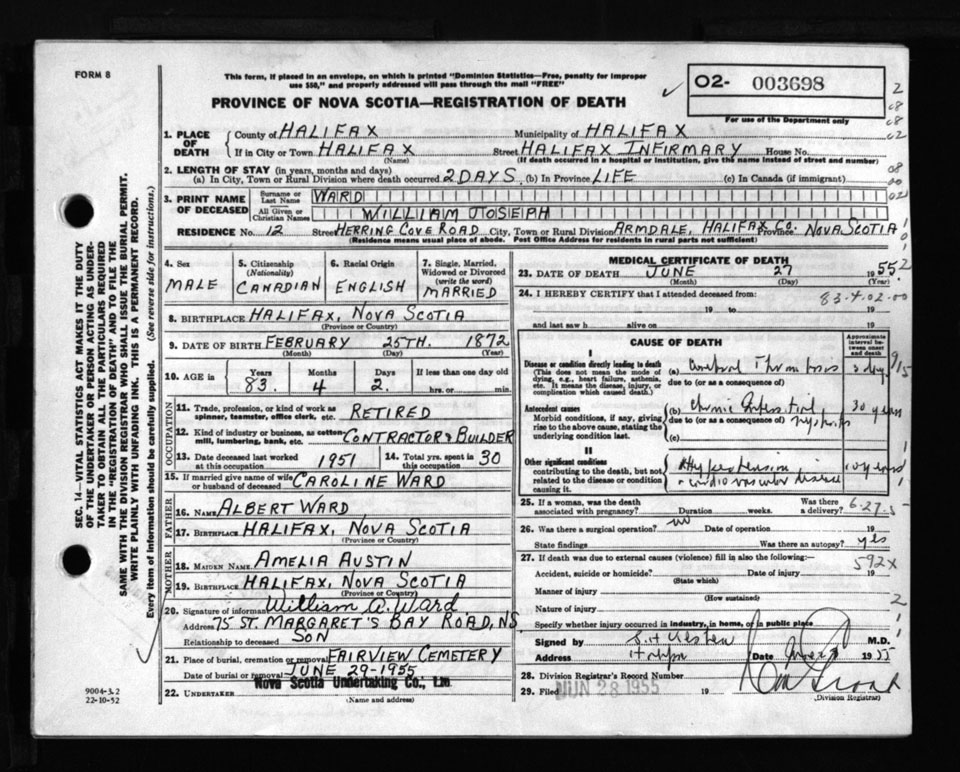 FORM 8
This form, if placed in an envelope, on which is printed "Dominion Statistics—Free, penalty for improper
use $50," and properly addressed will pass through the mail "FREE"
PROVINCE OF NOVA SCOTIA—REGISTRATION OF DEATH
02- 003698
For use of the Department only
1. PLACE OF DEATH
County of HALIFAX Municipality of HALIFAX
If in City or Town HALIFAX Street HALIFAX INFIRMARY House No.
(Name) (If death occurred in a hospital or institution, give the name instead of street and number)
2. LENGTH OF STAY (in years, months and days)
(a) In City, Town or Rural Division where death occurred 2 DAYS (b) In Province LIFE (c) In Canada (if immigrant)
3. PRINT NAME OF DECEASED
Surname or Last Name WARD
All Given or Christian Names WILLIAM JOSEPH
RESIDENCE No. 12 Street HERRING COVE ROAD City, Town or Rural Division ARMDALE, HALIFAX CO. Province NOVA SCOTIA
(Residence means usual place of abode. Post Office Address for residents in rural parts not sufficient)
4. Sex
MALE
5. Citizenship (Nationality)
CANADIAN
6. Racial Origin
ENGLISH
7. Single, Married, Widowed or Divorced (write the word)
MARRIED
8. BIRTHPLACE HALIFAX, NOVA SCOTIA
(Province or Country)
9. DATE OF BIRTH FEBRUARY 25TH. 1872
(Month) (Day) (Year)
10. AGE in Years Months Days If less than one day
83. 4 2. hrs. or min.
OCCUPATION
11. Trade, profession, or kind of work as spinner, teamster, office clerk, etc. RETIRED
12. Kind of industry or business, as cotton mill, lumbering, bank, etc. CONTRACTOR & BUILDER
13. Date deceased last worked at this occupation 1951
14. Total yrs. spent in this occupation 30
15. If married give name of wife or husband of deceased CAROLINE WARD
FATHER
16. NAME ALBERT WARD
17. BIRTHPLACE HALIFAX, NOVA SCOTIA
(Province or Country)
MOTHER
18. MAIDEN NAME AMELIA AUSTIN
19. BIRTHPLACE HALIFAX, NOVA SCOTIA
(Province or Country)
20. Signature of informant William A. Ward
Address 75 ST. MARGARET'S BAY ROAD, NS
Relationship to deceased SON
21. Place of burial, cremation or removal FAIRVIEW CEMETERY
Date of burial or removal JUNE 29-1955
22. UNDERTAKER Nova Scotia Undertaking Co., Ltd.
(Name and address)
MEDICAL CERTIFICATE OF DEATH
23. DATE OF DEATH JUNE 27 1955
(Month) (Day) (Year)
24. I HEREBY CERTIFY that I attended deceased from:
83.4.02.00
19 to 19
and last saw h alive on 19
CAUSE OF DEATH
Approximate interval between onset and death
I
Disease or condition directly leading to death
(This does not mean the mode of dying, e.g., heart failure, asthenia, etc. It means the disease, injury, or complication which caused death.)
(a) Cerebral Thrombosis 3 days
due to (or as a consequence of)
Antecedent causes
Morbid conditions, if any, giving rise to the above cause, stating the underlying condition last.
(b) Chronic Interstitial nephritis 30 years
due to (or as a consequence of)
(c)
II
Other significant conditions
contributing to the death, but not related to the disease or condition causing it.
Hypertension
cardio vascular disease 10 years
25. If a woman, was the death associated with pregnancy? Duration weeks. Was there a delivery?
6-27-5
26. Was there a surgical operation? no Date of operation 19
State findings Was there an autopsy? yes
27. If death was due to external causes (violence) fill in also the following:—
592X
Accident, suicide or homicide? Date of injury 19
(State which)
Manner of injury
(How sustained)
Nature of injury
Specify whether injury occurred in industry, in home, or in public place
Signed by M.D.
Address Halifax Date 1955
28. Division Registrar's Record Number
29. Filed JUN 28 1955 19
(Division Registrar)
SEC. 14—VITAL STATISTICS ACT MAKES IT THE DUTY
OF THE UNDERTAKER OR PERSON ACTING AS UNDER-
TAKER TO OBTAIN ALL THE PARTICULARS REQUIRED
IN THE "REGISTRATION OF DEATH" AND TO FILE THE
SAME WITH THE DIVISION REGISTRAR WHO SHALL ISSUE THE BURIAL PERMIT.
WRITE PLAINLY WITH UNFADING INK. THIS IS A PERMANENT RECORD.
Every item of information should be carefully supplied. (See reverse side for instructions.)
9004-3.2
22-10-52